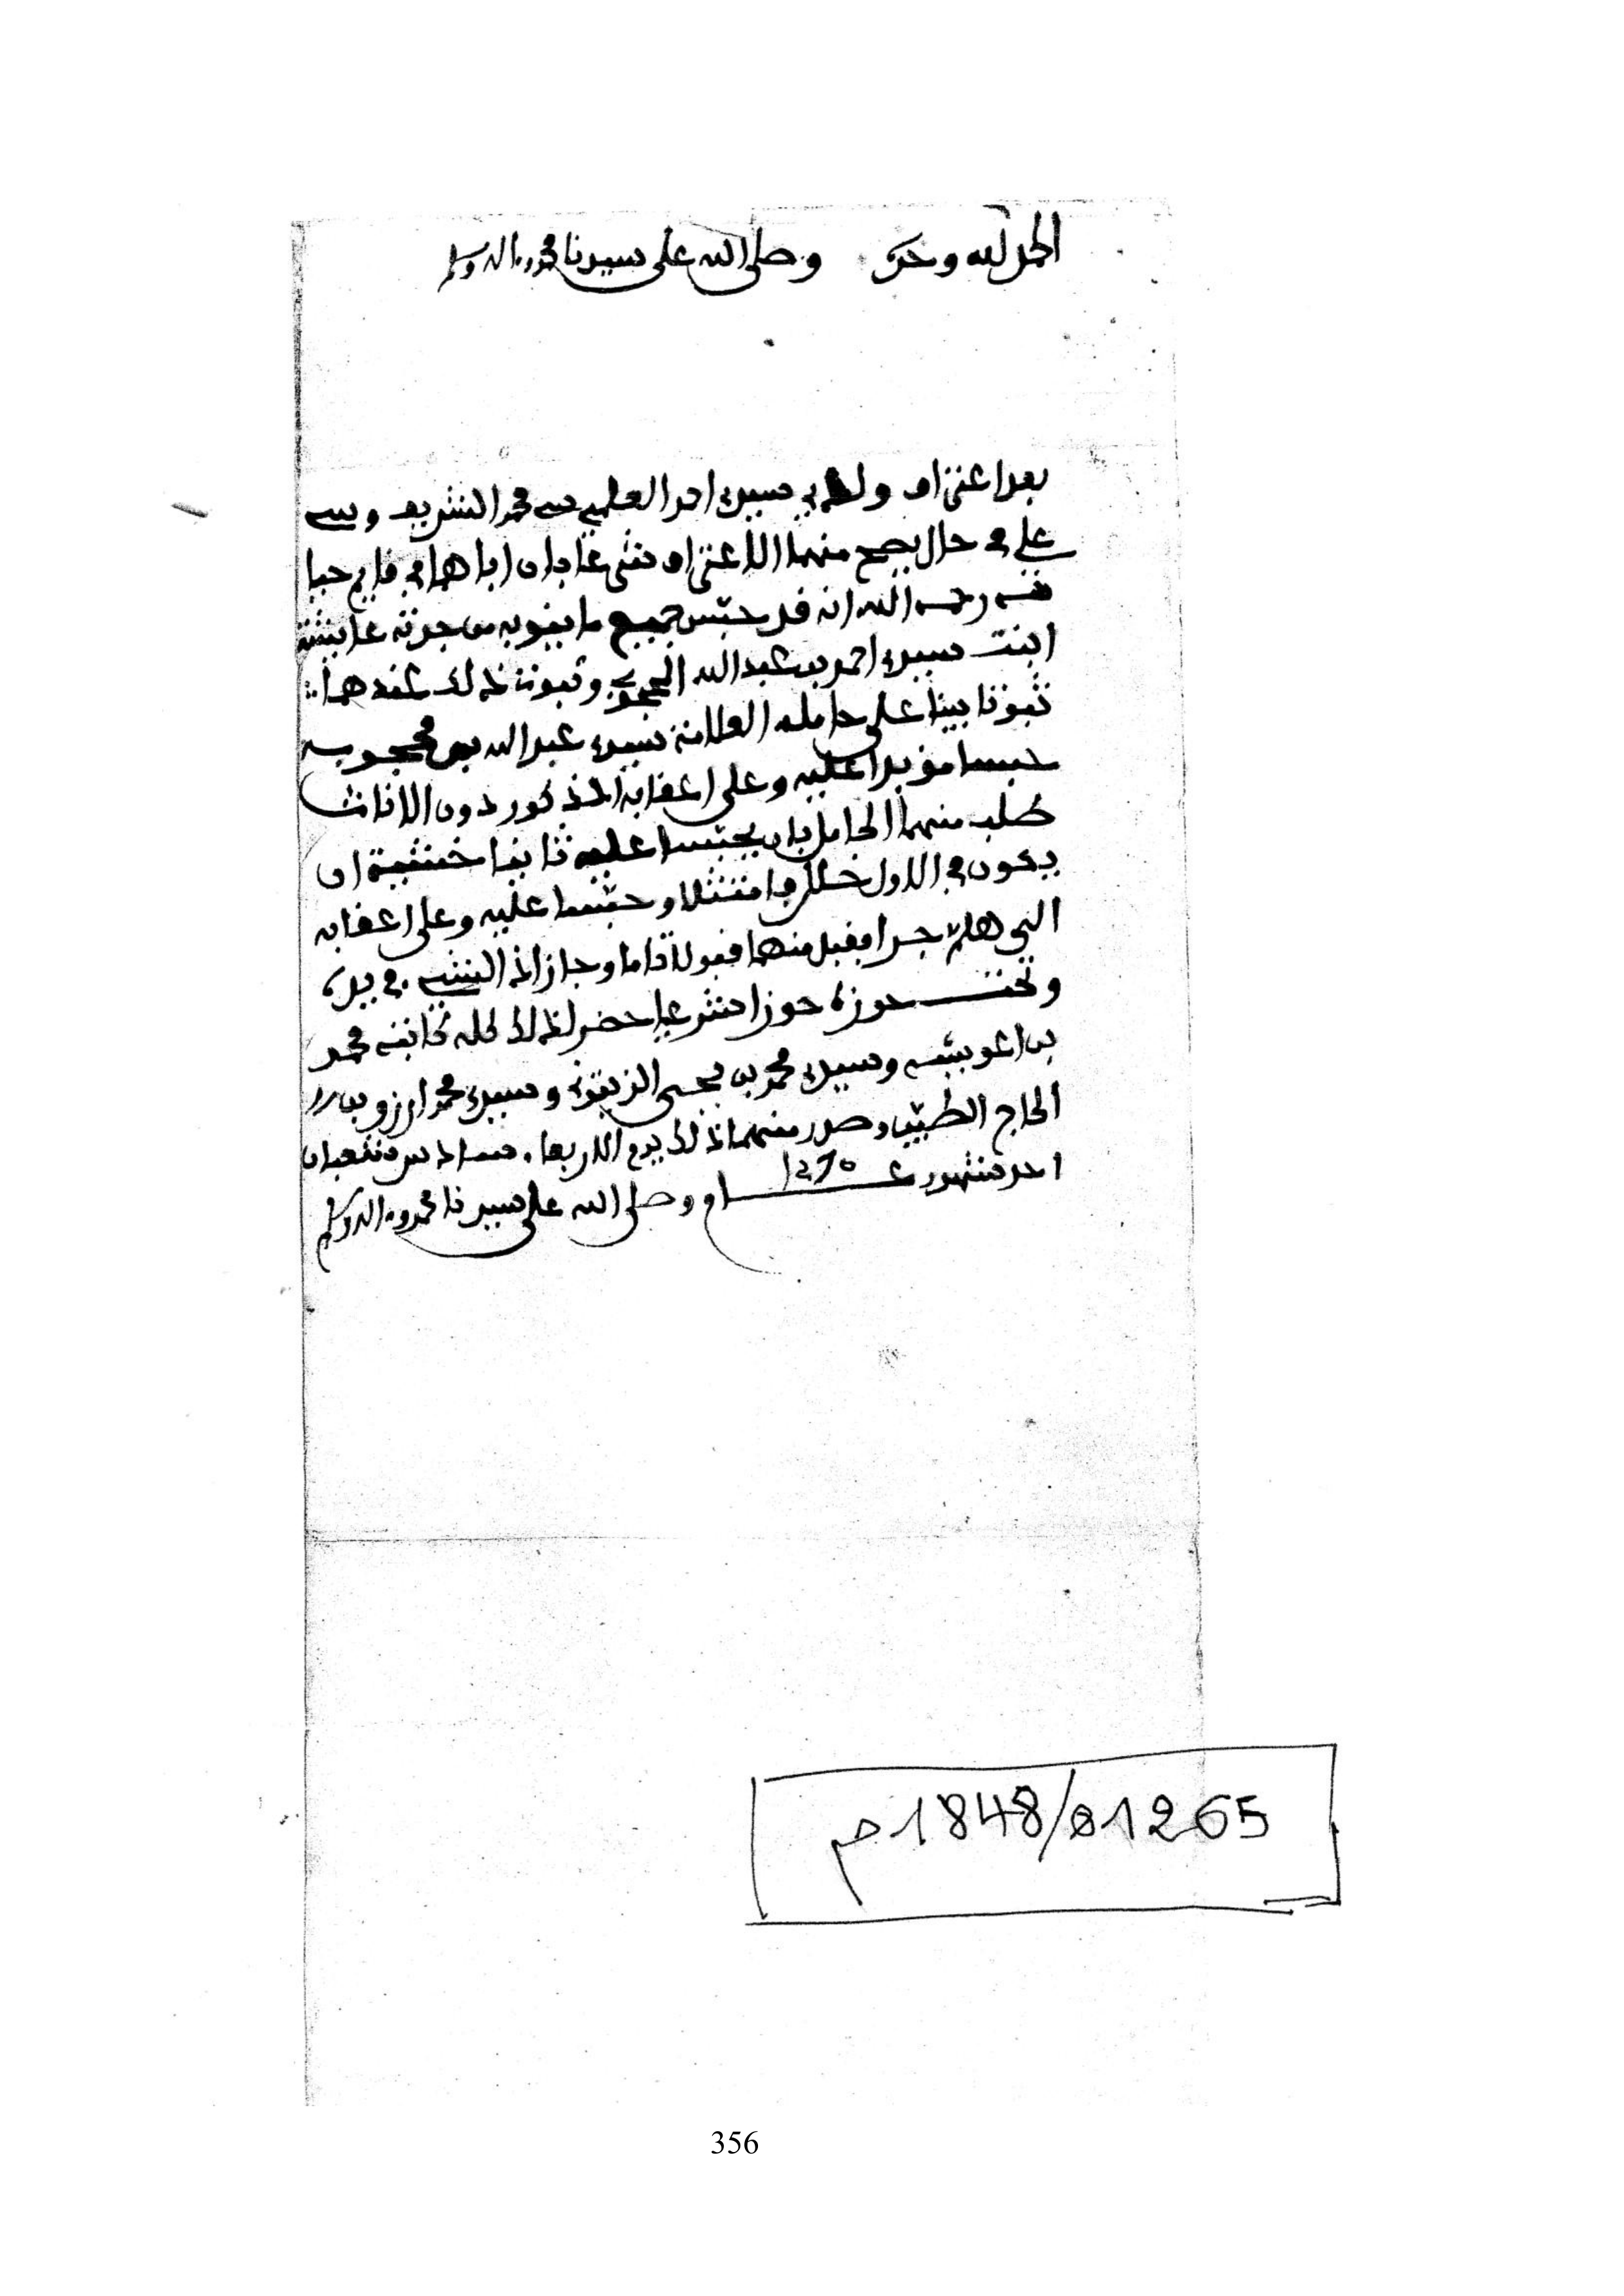 الحمد لله وحده وصلى الله على سيدنا محمد وءاله وسلم
بعد اعتراف ولدي سيدي احمد العلمي سي محمد الشريف وسي
علي في حال يصح منهما الاعتراف شرعا بان اباهما في قايم حيا
ته رحمه الله انه قد حبس جميع ما ينوبه من جدته عايشة
ابنت سيدي احمد بن عبد الله وثبوت ذلك عندهما
ثبوتا بينا على حامله العلامة سيدي عبد الله بن محجوبه
حبسا مؤبدا عليه وعلى اعقابه الذكور دون الاناث
طلب منهما الحامل بان يحبسا عليه ثانيا خشية ان
يكون في الاول خلل فامتثلا وحبسا عليه وعلى اعقابه
الى هلم جرا فقبل منهما قبولا تاما وحاز الشيء في يده
وتحت حوزه حوزا شرعيا حضر لذلك كله كاتبه محمد
بن اعويشه وسيدي محمد بن يحيى الزيتوني وسيدي محمد ارزو بن
الحاج الطيب وصدر منهما ذلك يوم الاربعاء سادس شعبان
احد شهور عام وصلى الله على سيدنا محمد وءاله وسلم
1265ه/1848م
356